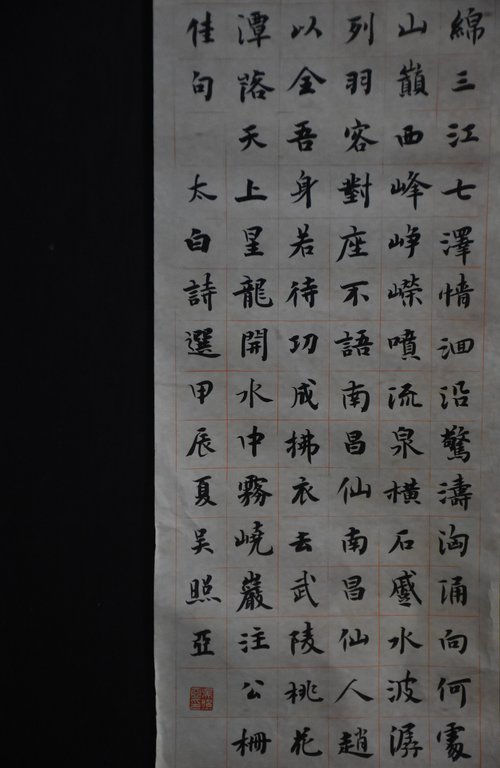 綿三江七澤情洄沿驚濤洶涌向何處
山巔西峰崢嶸噴流泉橫石蹙水波潺
列羽容對座不語南昌仙南昌仙人趙
以全吾身若待功成拂衣去武陵桃花
潭落天上星龍開水中霧嶢巖注公柵
佳句 太白詩選甲辰夏吴照亞